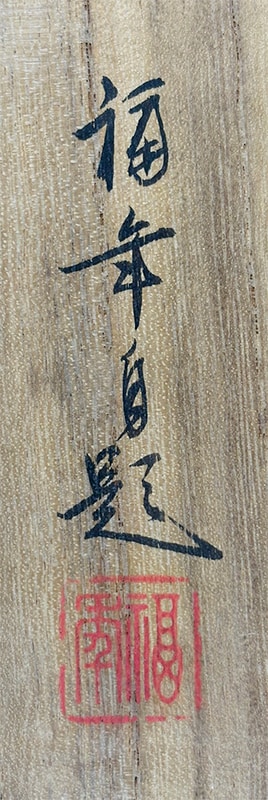 福年自題
福年